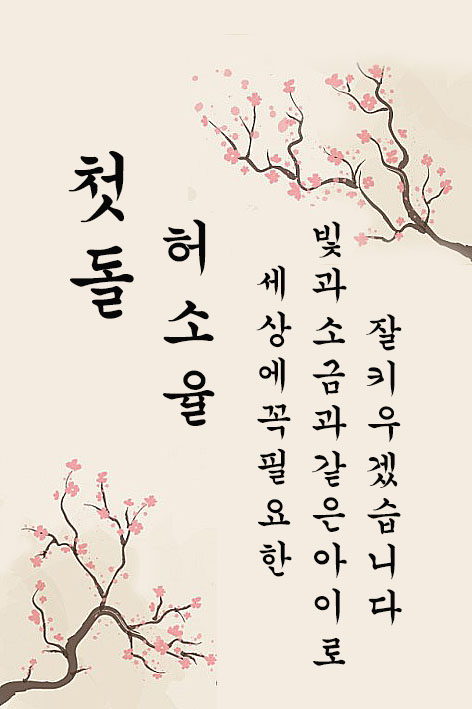 첫돌
허소율
세상에꼭필요한
빛과소금과같은아이로
잘키우겠습니다